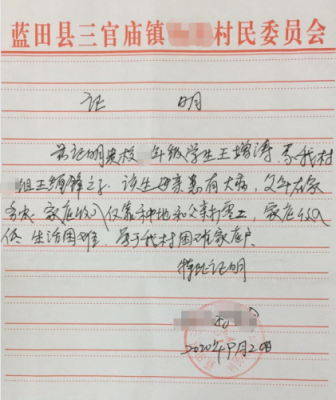 蓝田县三官庙镇 村民委员会
证 明
兹证明贵校 年级学生王增涛 系我村
组王 锋之子。该生母亲患有大病，父 在家
务农，家庭收入仅靠种地和父亲打零工，家庭收入
低 生活困难，属于我村困难家庭户。
特此证明
2020年9月2日